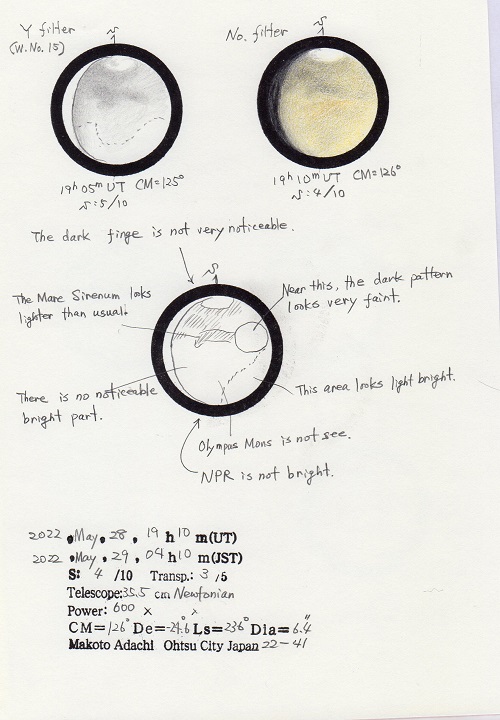 Y filter
(W. No. 15)
S
No. filter
S
19h 05m UT CM=125°
S: 5/10
19h 10m UT CM=126°
S: 4/10
The dark finge is not very noticeable.
S
The Mare Sirenum looks
lighter than usual.
Near this, the dark pattern
looks very faint.
There is no noticeable
bright part.
This area looks light bright.
Olympus Mons is not see.
NPR is not bright.
2022 . May . 28 , 19 h 10 m(UT)
2022 . May . 29 , 04 h 10 m(JST)
S: 4 /10 Transp.: 3 /5
Telescope: 35.5 cm Newtonian
Power: 600 x
CM=126° De=-24.6° Ls=236° Dia=6.4"
Makoto Adachi Ohtsu City Japan 22-41